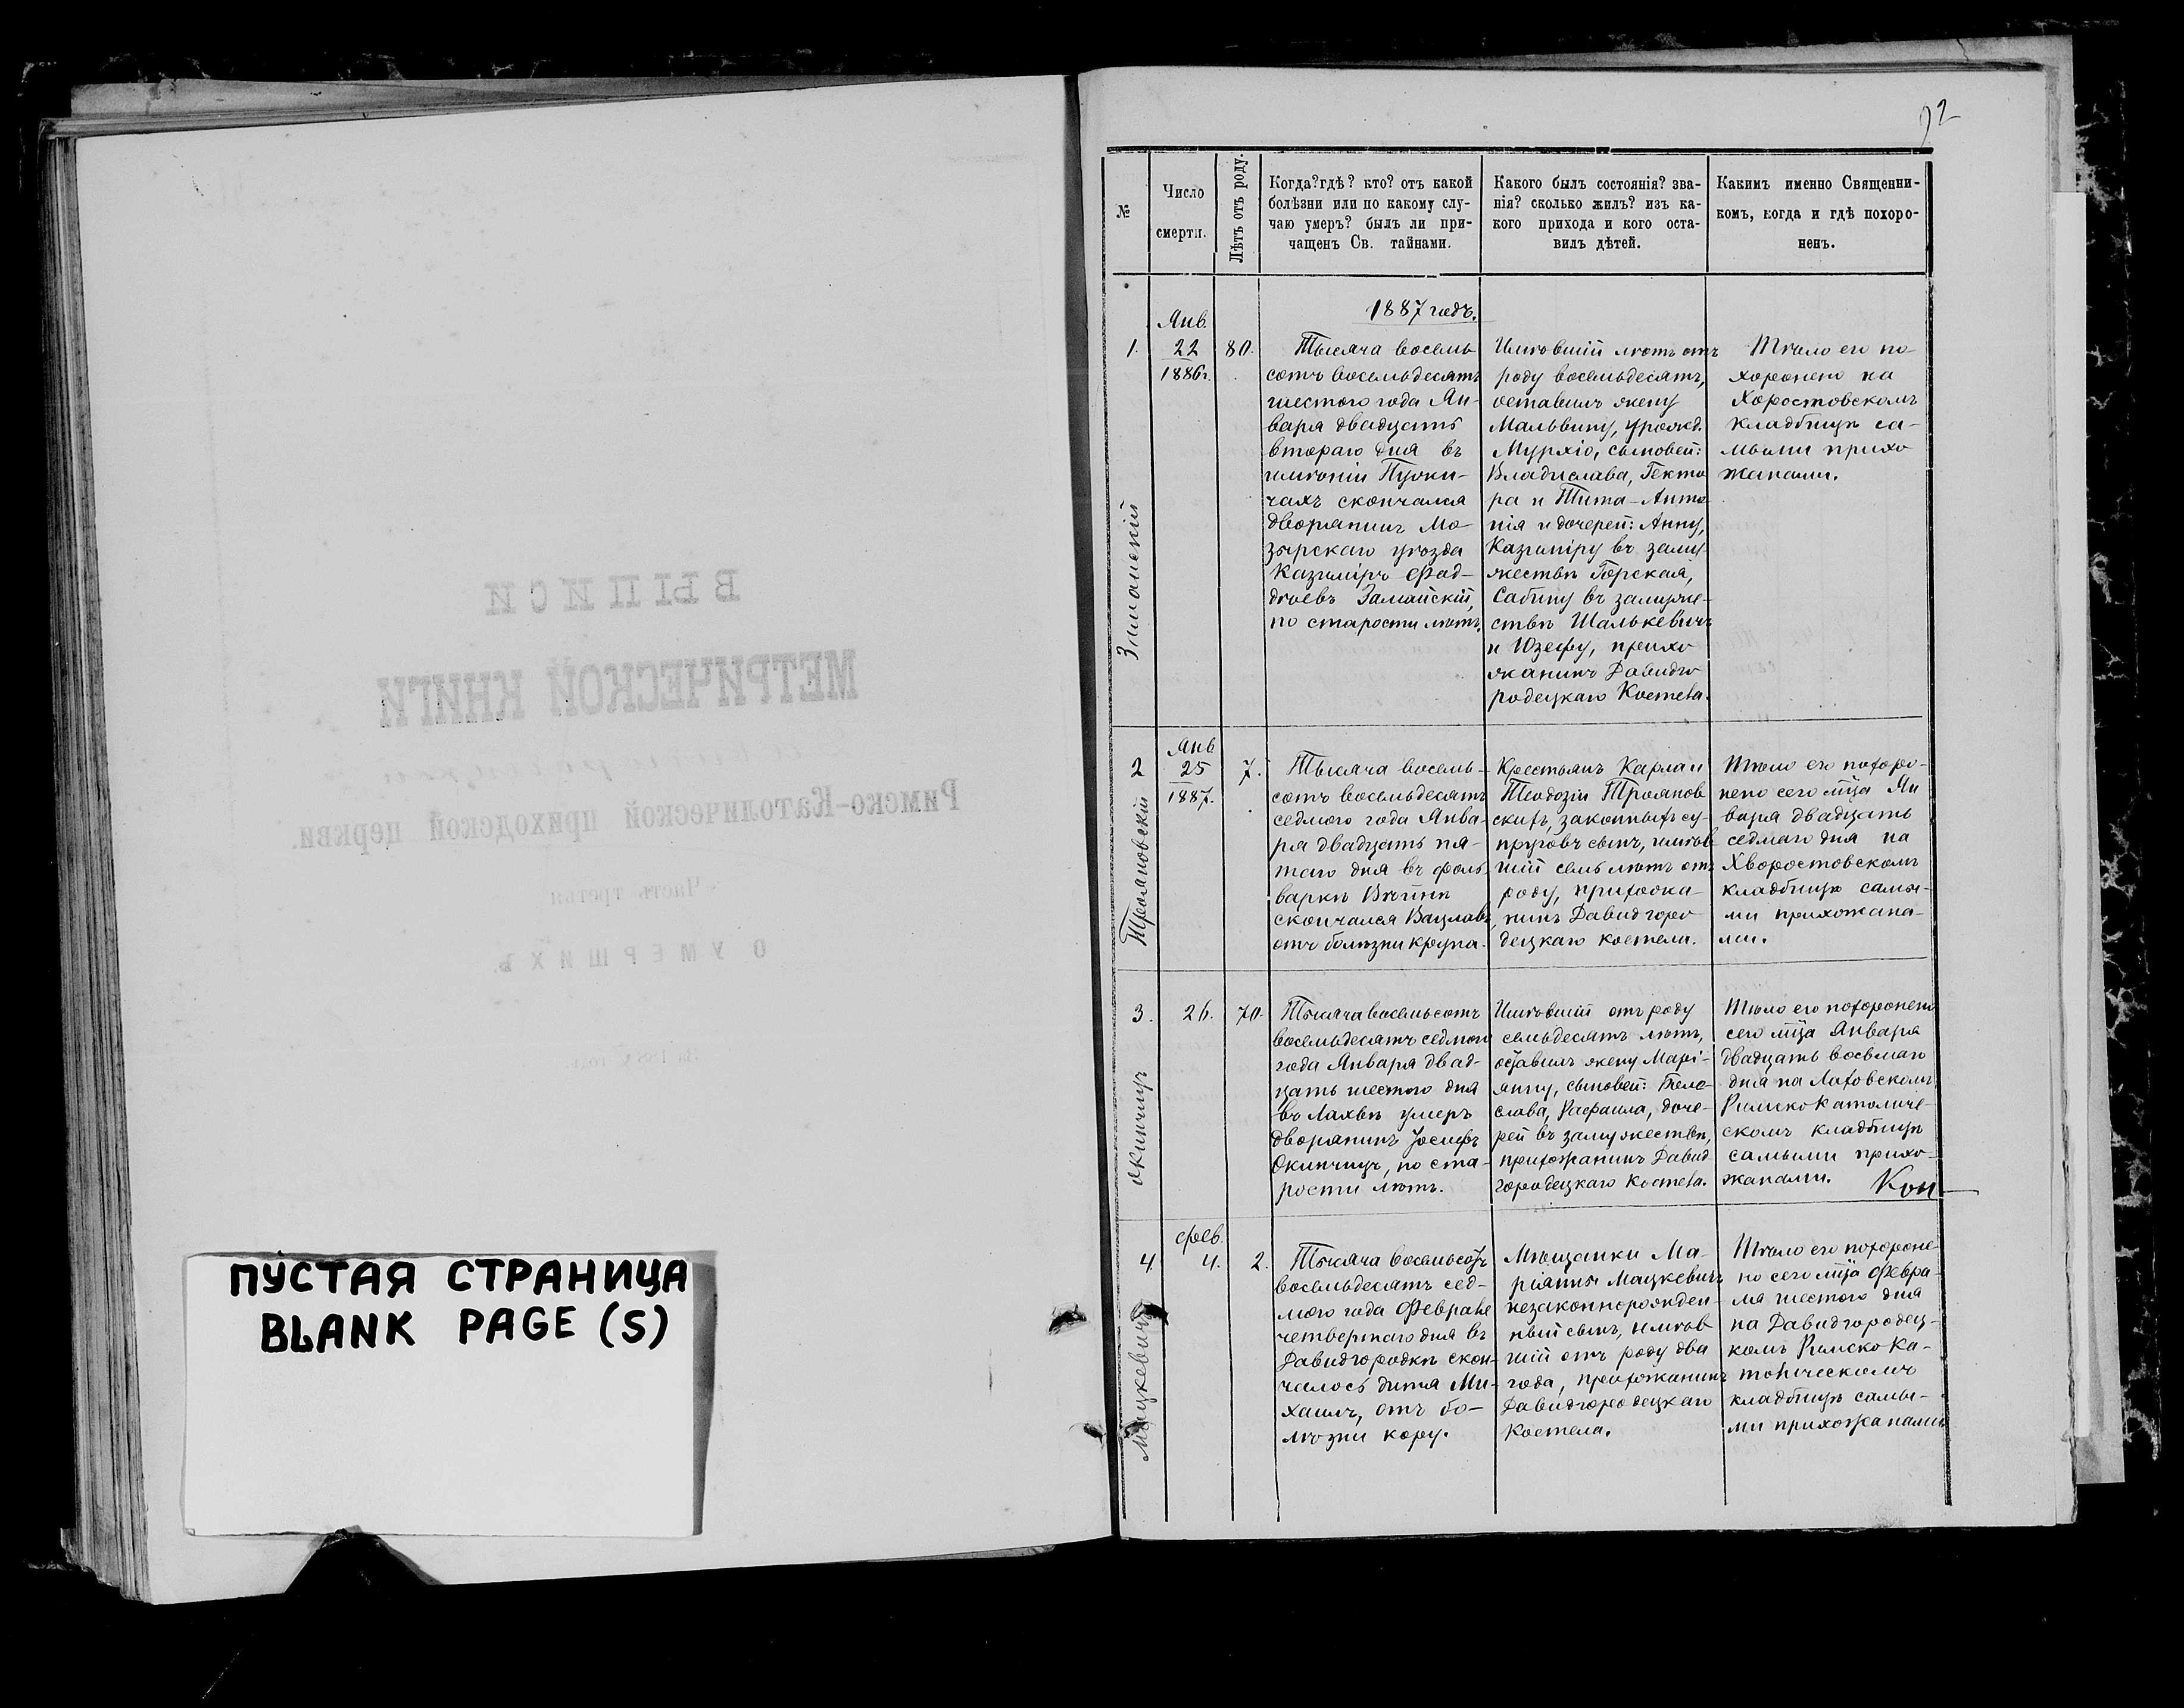 92
№
Число
смерти.
Лѣтъ отъ роду.
Когда? гдѣ? кто? отъ какой
болѣзни или по какому слу-
чаю умеръ? былъ ли при-
чащенъ Св. тайнами.
Какого былъ состоянія? зва-
нія? сколько жилъ? изъ ка-
кого прихода и кого оста-
вилъ дѣтей.
Какимъ именно Священни-
комъ, когда и гдѣ похоро-
ненъ.
1887 годъ.
1.
Янв.
22
1886г.
80.
Тысяча восемь
сотъ восемьдесятъ
шестого года Ян-
варя двадцать
втораго дня въ
имѣніи Пузи-
чахъ скончался
дворянинъ Мо-
зырскаго уѣзда
Казиміръ Фад-
дѣевъ
по старости лѣтъ.
Имѣвшій лѣтъ отъ
роду восемьдесятъ,
оставилъ жену
Мальвину, урожд.
сыновей:
Владислава, Гекто
ра и Тита-Анто
нія и дочерей: Анну,
Казиміру въ заму-
жествѣ Горская,
Сабину въ замуже-
ствѣ Шалькевичъ
и Юзефу, прихо
жанинъ Давидго
родецкаго Костела.
Тѣло его по-
хоронено на
Хоростовскомъ
кладбищѣ са-
мыми прихо
жанами.
2
Трояновскій
Янв
25
1887.
7.
Тысяча восемь-
сотъ восемьдесятъ
седмого года Янва-
ря двадцать пя-
таго дня въ фоль-
варкѣ
скончался Вацлавъ,
отъ болѣзни крупа.
Крестьянъ Карла и
Теодозіи Троянов
скихъ, законныхъ су-
пруговъ сынъ, имѣв
шій семь лѣтъ отъ
роду, прихожа-
нинъ Давидгоро
децкаго костела.
Тѣло его похоро-
нено сего мца Ян
варя двадцать
седмаго дня на
Хворостовскомъ
кладбищѣ самы-
ми прихожана-
ми.
3.
Окинчицъ
26.
70.
Тысяча восемьсотъ
восемьдесятъ седмого
года Января двад-
цать шестого дня
въ Лахвѣ умеръ
дворянинъ Іосифъ
Окинчицъ, по ста-
рости лѣтъ.
Имѣвшій отъ роду
семьдесятъ лѣтъ,
оставилъ жену Марі-
янну, сыновей:
Рафаила, доче-
рей въ замужествѣ,
прихожанинъ Давид
городецкаго Костела.
Тѣло его похоронено
сего мца Января
двадцать восьмаго
дня на Лаховскомъ
РимскоКатоличе-
скомъ кладбищѣ
самыми прихо-
жанами.
4
Мацкевичъ
Фев.
4.
2.
Тысяча восемьсотъ
восемьдесятъ сед-
мого года Февраля
четвертаго дня въ
Давидгородкѣ скон-
чалось дитя Ми-
хаилъ, отъ бо-
лѣзни кору.
Мѣщанки Ма-
ріянны Мацкевичъ
незаконнорожден-
ный сынъ, имѣв
шій отъ роду два
года, прихожанинъ
Давидгородецкаго
Костела.
Тѣло его похороне-
но сего мца Февра-
ля шестого дня
на Давидгородец-
комъ Римско Ка-
толическомъ
кладбищѣ самы-
ми прихожанами
ВЫПИСИ
МЕТРИЧЕСКОЙ КНИГИ
Римско-Католической приходской церкви.
Часть третья
О УМЕРШИХЪ.
ПУСТАЯ СТРАНИЦА
BLANK PAGE (S)